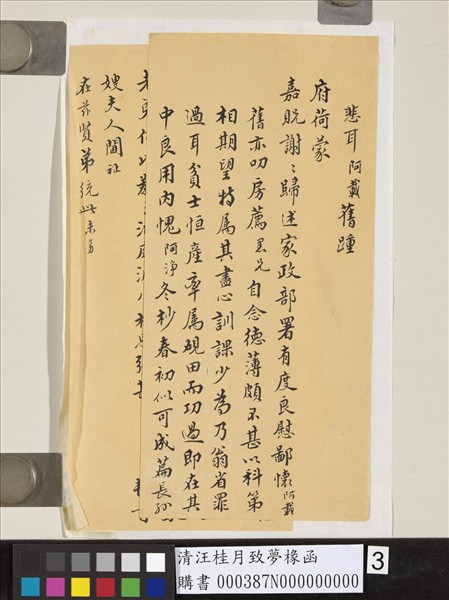 悲耳阿戴舊踵
府荷蒙
嘉貺謝謝歸述家政部署有度良慰鄙懷阿戴
舊亦叨房薦君兄自念德薄頗不甚以科第
相期望特属其盡心訓課少為乃翁省罪
過耳貧士恒產率属硯田而功過即在其
中良用内愧阿淨冬杪春初似可成篇長孙
嫂夫人閫祉
在茲賢弟統此未另
清汪桂月致夢橡函
購書 000387N000000000
3